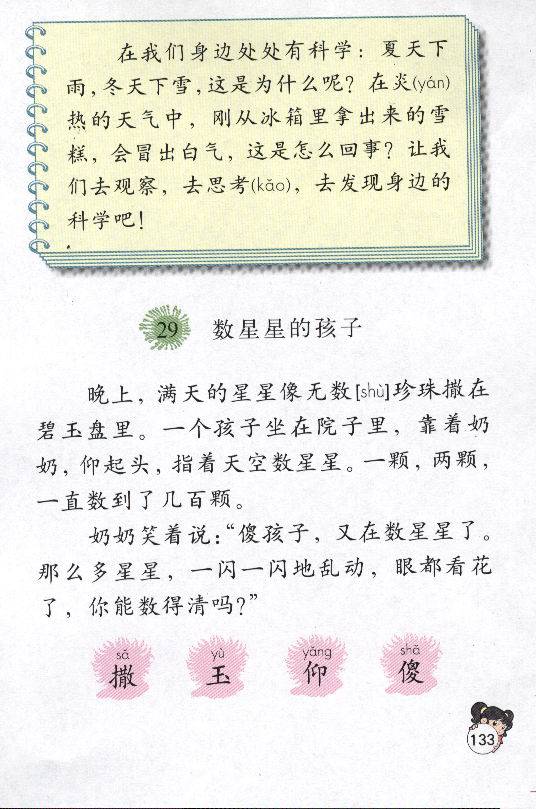 在我们身边处处有科学：夏天下
雨，冬天下雪，这是为什么呢？在炎(yán)
热的天气中，刚从冰箱里拿出来的雪
糕，会冒出白气，这是怎么回事？让我
们去观察，去思考(kǎo)，去发现身边的
科学吧！
29 数星星的孩子
晚上，满天的星星像无数[shù]珍珠撒在
碧玉盘里。一个孩子坐在院子里，靠着奶
奶，仰起头，指着天空数星星。一颗，两颗，
一直数到了几百颗。
奶奶笑着说：“傻孩子，又在数星星了。
那么多星星，一闪一闪地乱动，眼都看花
了，你能数得清吗？”
sǎ yù yǎng shǎ
撒 玉 仰 傻
133